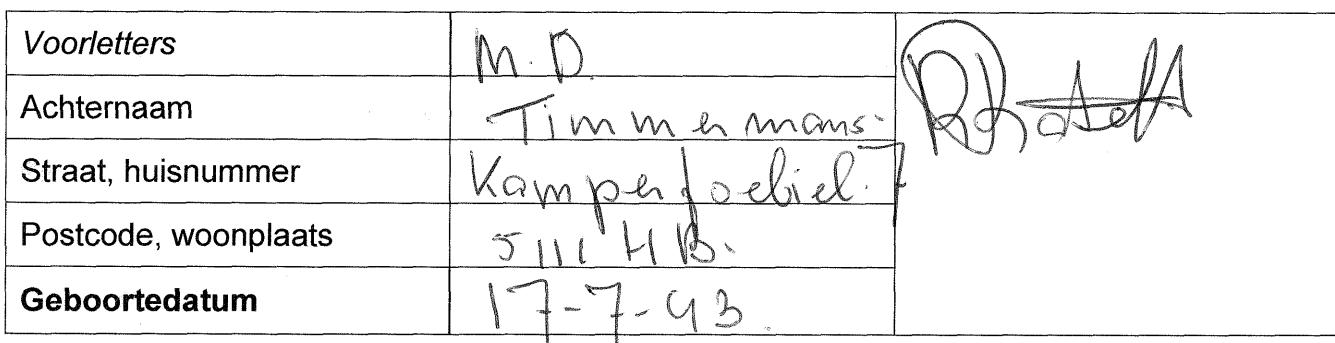 Voorletters M.D.
Achternaam Timmermans
Straat, huisnummer Kamperfoeliel. 7
Postcode, woonplaats 5111 HB.
Geboortedatum 17-7-93